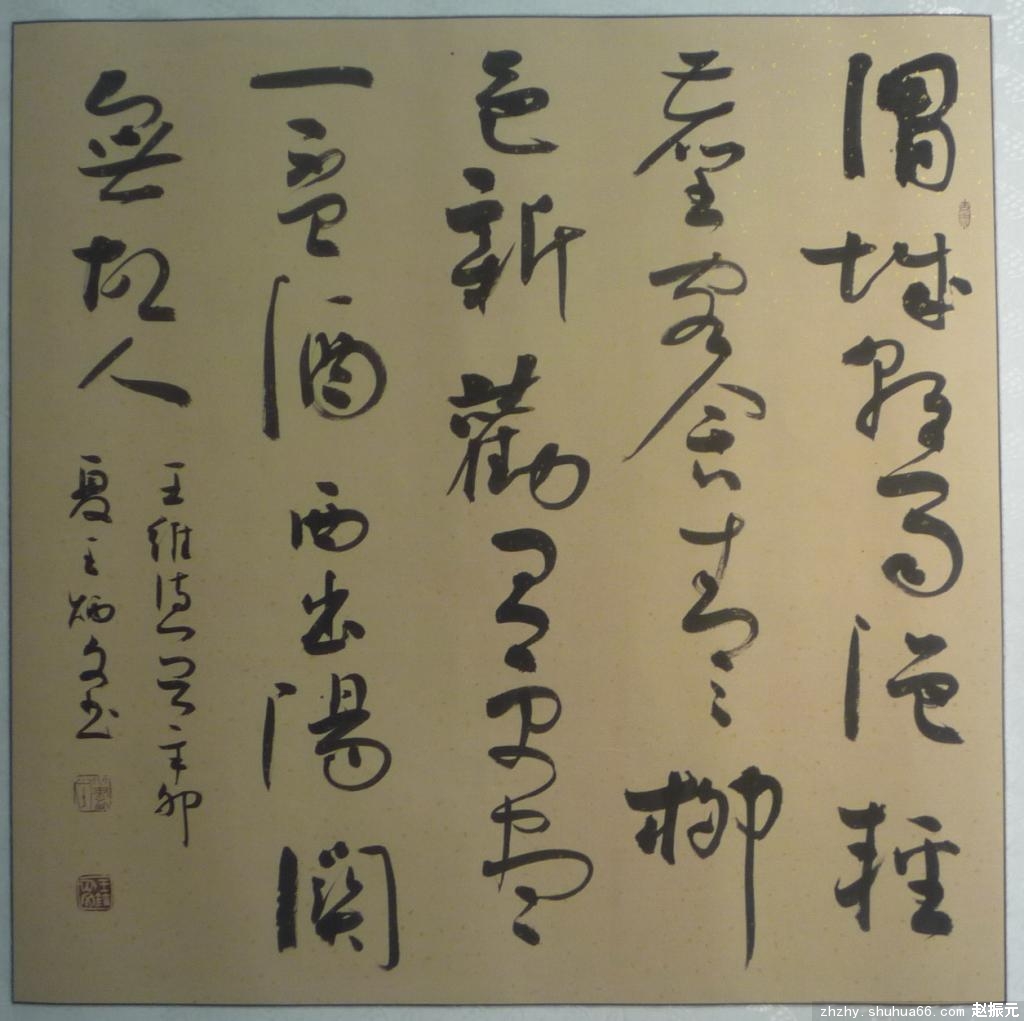 渭城朝雨浥輕
塵客舍青〻柳
色新勸君更盡
一盃酒西出陽關
無故人
王維詩一首辛卯
夏王炳文书
zhzhy.shuhua66.com 赵振元